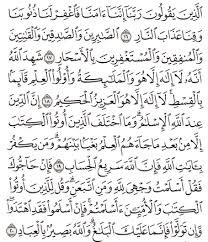 ٱلَّذِينَ يَقُولُونَ رَبَّنَآ إِنَّنَآ ءَامَنَّا فَٱغْفِرْ لَنَا ذُنُوبَنَا
وَقِنَا عَذَابَ ٱلنَّارِ ١٦ ٱلصَّٰبِرِينَ وَٱلصَّٰدِقِينَ وَٱلْقَٰنِتِينَ
وَٱلْمُنفِقِينَ وَٱلْمُسْتَغْفِرِينَ بِٱلْأَسْحَارِ ١٧ شَهِدَ ٱللَّهُ
أَنَّهُۥ لَآ إِلَٰهَ إِلَّا هُوَ وَٱلْمَلَٰٓئِكَةُ وَأُو۟لُوا۟ ٱلْعِلْمِ قَآئِمًۢا
بِٱلْقِسْطِ لَآ إِلَٰهَ إِلَّا هُوَ ٱلْعَزِيزُ ٱلْحَكِيمُ ١٨ إِنَّ ٱلدِّينَ
عِندَ ٱللَّهِ ٱلْإِسْلَٰمُ وَمَا ٱخْتَلَفَ ٱلَّذِينَ أُوتُوا۟ ٱلْكِتَٰبَ
إِلَّا مِنۢ بَعْدِ مَا جَآءَهُمُ ٱلْعِلْمُ بَغْيًۢا بَيْنَهُمْ وَمَن يَكْفُرْ
بِـَٔايَٰتِ ٱللَّهِ فَإِنَّ ٱللَّهَ سَرِيعُ ٱلْحِسَابِ ١٩ فَإِنْ حَآجُّوكَ
فَقُلْ أَسْلَمْتُ وَجْهِىَ لِلَّهِ وَمَنِ ٱتَّبَعَنِ وَقُل لِّلَّذِينَ أُوتُوا۟
ٱلْكِتَٰبَ وَٱلْأُمِّيِّـۧنَ ءَأَسْلَمْتُمْ فَإِنْ أَسْلَمُوا۟ فَقَدِ ٱهْتَدَوا۟
وَّإِن تَوَلَّوْا۟ فَإِنَّمَا عَلَيْكَ ٱلْبَلَٰغُ وَٱللَّهُ بَصِيرٌۢ بِٱلْعِبَادِ ٢٠